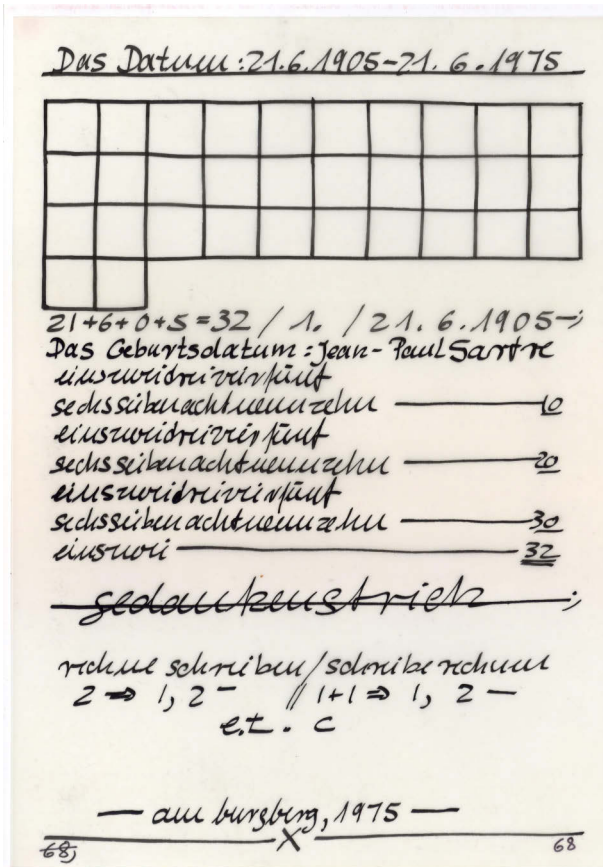 Das Datum: 21.6.1905-21.6.1975
21+6+0+5=32 / 1. / 21.6.1905-;
Das Geburtsdatum: Jean-Paul Sartre
einszweidreivierfünf
sechssiebenachtneunzehn — 10
einszweidreivierfünf
sechssiebenachtneunzehn — 20
einszweidreivierfünf
sechssiebenachtneunzehn — 30
einszwei — 32
gedankenstrich ;
rechne schreiben / schreibe rechnen
2 ⇒ 1, 2 - // 1+1 ⇒ 1, 2 —
e.t. c
— am burgberg, 1975 —
68, X 68